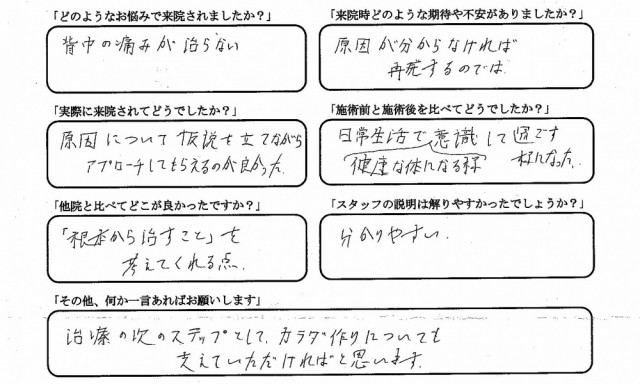 「どのようなお悩みで来院されましたか？」
背中の痛みが治らない
「来院時どのような期待や不安がありましたか？」
原因が分からなければ
再発するのでは
「実際に来院されてどうでしたか？」
原因について仮説を立てながら
アプローチしてもらえるのが良かった
「施術前と施術後を比べてどうでしたか？」
日常生活で意識して過ごす
健康な体になる様
様になった。
「他院と比べてどこが良かったですか？」
「根本から治すこと」を
考えてくれる点
「スタッフの説明は解りやすかったでしょうか？」
分かりやすい
「その他、何か一言あればお願いします」
治療の次のステップとして、カラダ作りについても
支えていただければと思います。